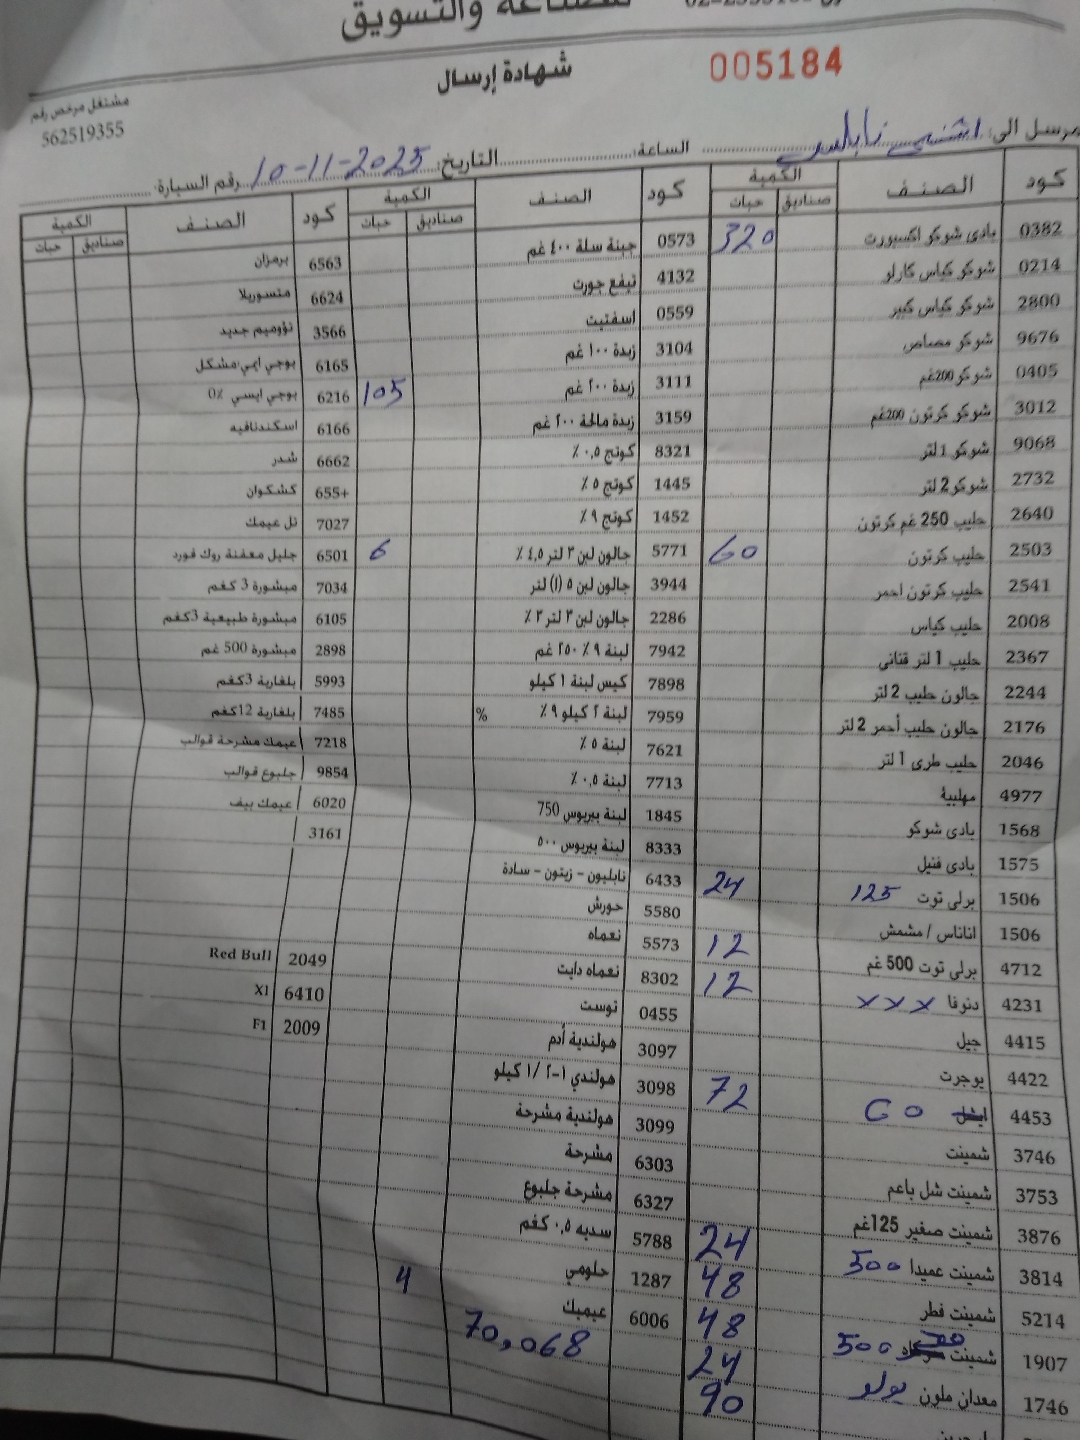 للصناعة والتسويق
شهادة إرسال
005184
مشتغل مرخص رقم
562519355
مرسل الى: نابلس
الساعة:
التاريخ: 10-11-2025
رقم السيارة:
كود الصنف الكمية صناديق حبات
0382 بادي شوكو اكسبورت 320
0214 شوكو كياس كارلو
2800 شوكو كياس كبير
9676 شوكو مصاص
0405 شوكو 200غم
3012 شوكو كرتون 200غم
9068 شوكو 1 لتر
2732 شوكو 2 لتر
2640 حليب 250 غم كرتون
2503 حليب كرتون 60
2541 حليب كرتون احمر
2008 حليب كياس
2367 حليب 1 لتر قناني
2244 جالون حليب 2 لتر
2176 جالون حليب أحمر 2 لتر
2046 حليب طري 1 لتر
4977 مهلبية
1568 بادي شوكو
1575 بادي فنيل
1506 برلي توت 125 24
1506 اناناس / مشمش
4712 برلي توت 500 غم 12
4231 دنوفا xxx 12
4415 جيل
4422 يوجرت
4453 GO 72
3746 شمينت
3753 شمينت شل باعم
3876 شمينت صغير 125غم
3814 شمينت عميدا 500 24
5214 شمينت فطر 48
1907 شمينت 500 48
1746 معدان ملون يولو 24
90
كود الصنف الكمية صناديق حبات
0573 جبنة سلة ٤٠٠ غم
4132 تيفع جورت
0559 اسفتيت
3104 زبدة ١٠٠ غم
3111 زبدة ٢٠٠ غم 105
3159 زبدة مالحة ٢٠٠ غم
8321 كوتج ٠,٥ ٪
1445 كوتج ٥ ٪
1452 كوتج ٩ ٪
5771 جالون لبن ٣ لتر ٤,٥ ٪ 6
3944 جالون لبن ٥ (١) لتر
2286 جالون لبن ٣ لتر ٣ ٪
7942 لبنة ٩ ٪ ٢٥٠ غم
7898 كيس لبنة ١ كيلو
7959 لبنة ٢ كيلو ٩ ٪ %
7621 لبنة ٥ ٪
7713 لبنة ٠,٥ ٪
1845 لبنة بيريوس 750
8333 لبنة بيريوس ٥٠٠
6433 نابليون - زيتون - سادة
5580 حورش
5573 نعماه
8302 نعماه دايت
0455 توست
3097 هولندية أدم
3098 هولندي ١-٢ /١ كيلو
3099 هولندية مشرحة
6303 مشرحة
6327 مشرحة جلبوع
5788 سدية ٠,٥ كغم
1287 حلومي 4
6006 عيميك
70,068
كود الصنف الكمية صناديق حبات
6563 برمزان
6624 متسوريلا
3566 نؤوميم جديد
6165 يوجي ايمي مشكل
6216 يوجي ايسي ٪0
6166 اسكندنافيه
6662 شدر
655+ كشكوان
7027 تل عيمك
6501 جليل معفنة روك فورد
7034 مبشورة 3 كغم
6105 مبشورة طبيعية 3كغم
2898 مبشورة 500 غم
5993 بلغارية 3كغم
7485 بلغارية 12كغم
7218 عيمك مشرحة قوالب
9854 جلبوع قوالب
6020 عيمك بيف
3161
2049 Red Bull
6410 Xl
2009 F1